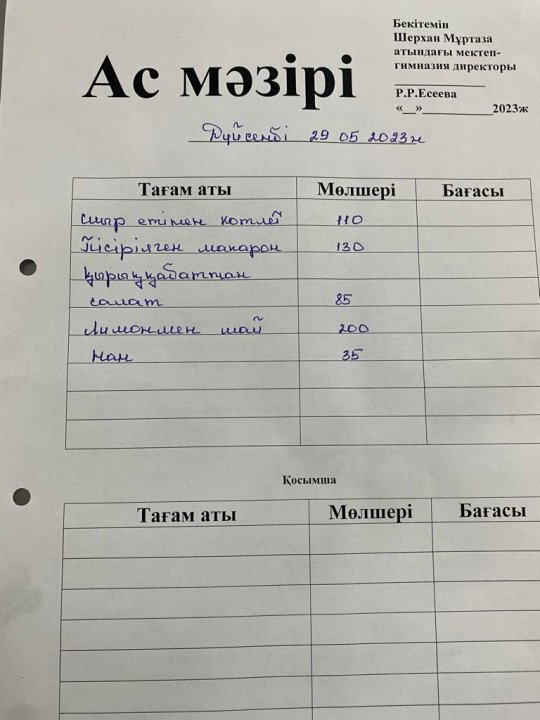 Бекітемін
Шерхан Мұртаза
атындағы мектеп-
гимназия директоры
Р.Р.Есеева
«__»___________2023ж
Ас мәзірі
Дүйсенбі 29 05 2023ж
Тағам аты Мөлшері Бағасы
Сиыр етімен котлет 110
Пісірілген макарон 130
Қырыққабаттан
салат 85
Лимонмен шай 200
Нан 35
Қосымша
Тағам аты Мөлшері Бағасы